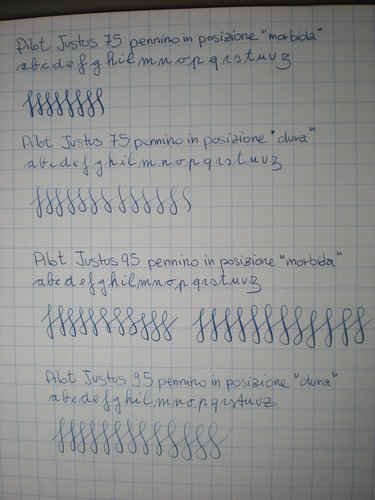 Pilot Justus 75 pennino in posizione "morbida"
abcdefghilmnopqrstuvz
Pilot Justus 75 pennino in posizione "dura"
abcdefghilmnopqrstuvz
Pilot Justus 95 pennino in posizione "morbida"
abcdefghilmnopqrstuvz
Pilot Justus 95 pennino in posizione "dura"
abcdefghilmnopqrstuvz